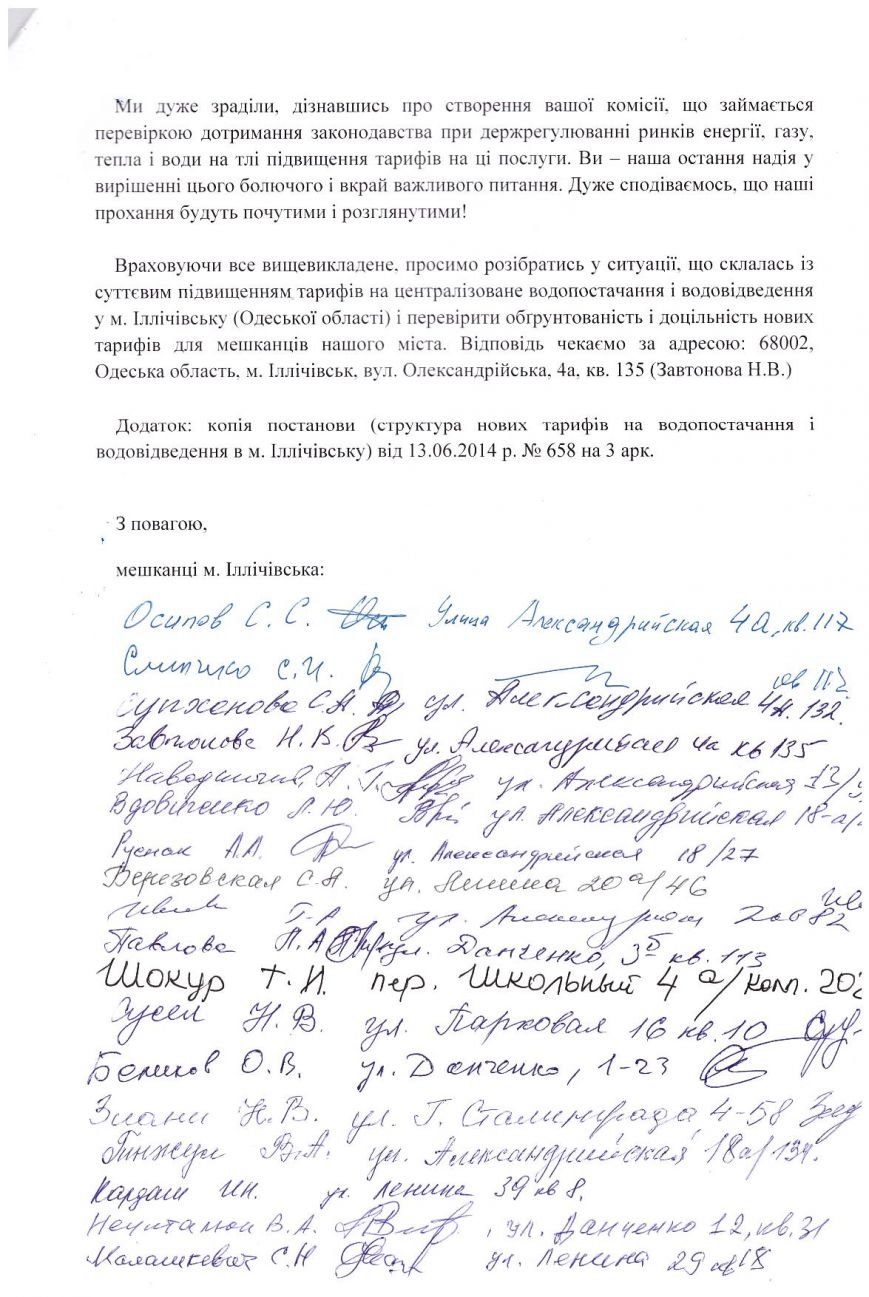 Ми дуже зраділи, дізнавшись про створення вашої комісії, що займається
перевіркою дотримання законодавства при держрегулюванні ринків енергії, газу,
тепла і води на тлі підвищення тарифів на ці послуги. Ви – наша остання надія у
вирішенні цього болючого і вкрай важливого питання. Дуже сподіваємось, що наші
прохання будуть почутими і розглянутими!
Враховуючи все вищевикладене, просимо розібратись у ситуації, що склалась із
суттєвим підвищенням тарифів на централізоване водопостачання і водовідведення
у м. Іллічівську (Одеської області) і перевірити обґрунтованість і доцільність нових
тарифів для мешканців нашого міста. Відповідь чекаємо за адресою: 68002,
Одеська область, м. Іллічівськ, вул. Олександрійська, 4а, кв. 135 (Завтонова Н.В.)
Додаток: копія постанови (структура нових тарифів на водопостачання і
водовідведення в м. Іллічівську) від 13.06.2014 р. № 658 на 3 арк.
З повагою,
мешканці м. Іллічівська:
Осипов С. С. Улица Александрийская 4а, кв. 117
С.И.
С.А. ул. Александрийская 4А. 132.
Завтонова Н. В. ул. Александрийская 4а кв 135
ул. Александрийская 13/
Вдовиченко Л. Ю. ул. Александрийская 18-а/
Руснак А.А. ул. Александрийская 18/27
Березовская С.А. ул. Ленина 20а/46
ул.
Павлова Л.А. ул. Данченко, 3Б кв. 113
Шокур Т.И. пер. Школьный 4а/комп. 202
Н.В. ул. Парковая 16 кв. 10
Беликов О.В. ул. Данченко, 1-23
Н.В. ул. Г. Сталинграда 4-58
Гинжул В.А. ул. Александрийская 18а/134.
Кардаш ул. Ленина 39 кв 8.
В.А. , ул. Данченко 12, кв. 31
Малашкевич С.Н ул. Ленина 29